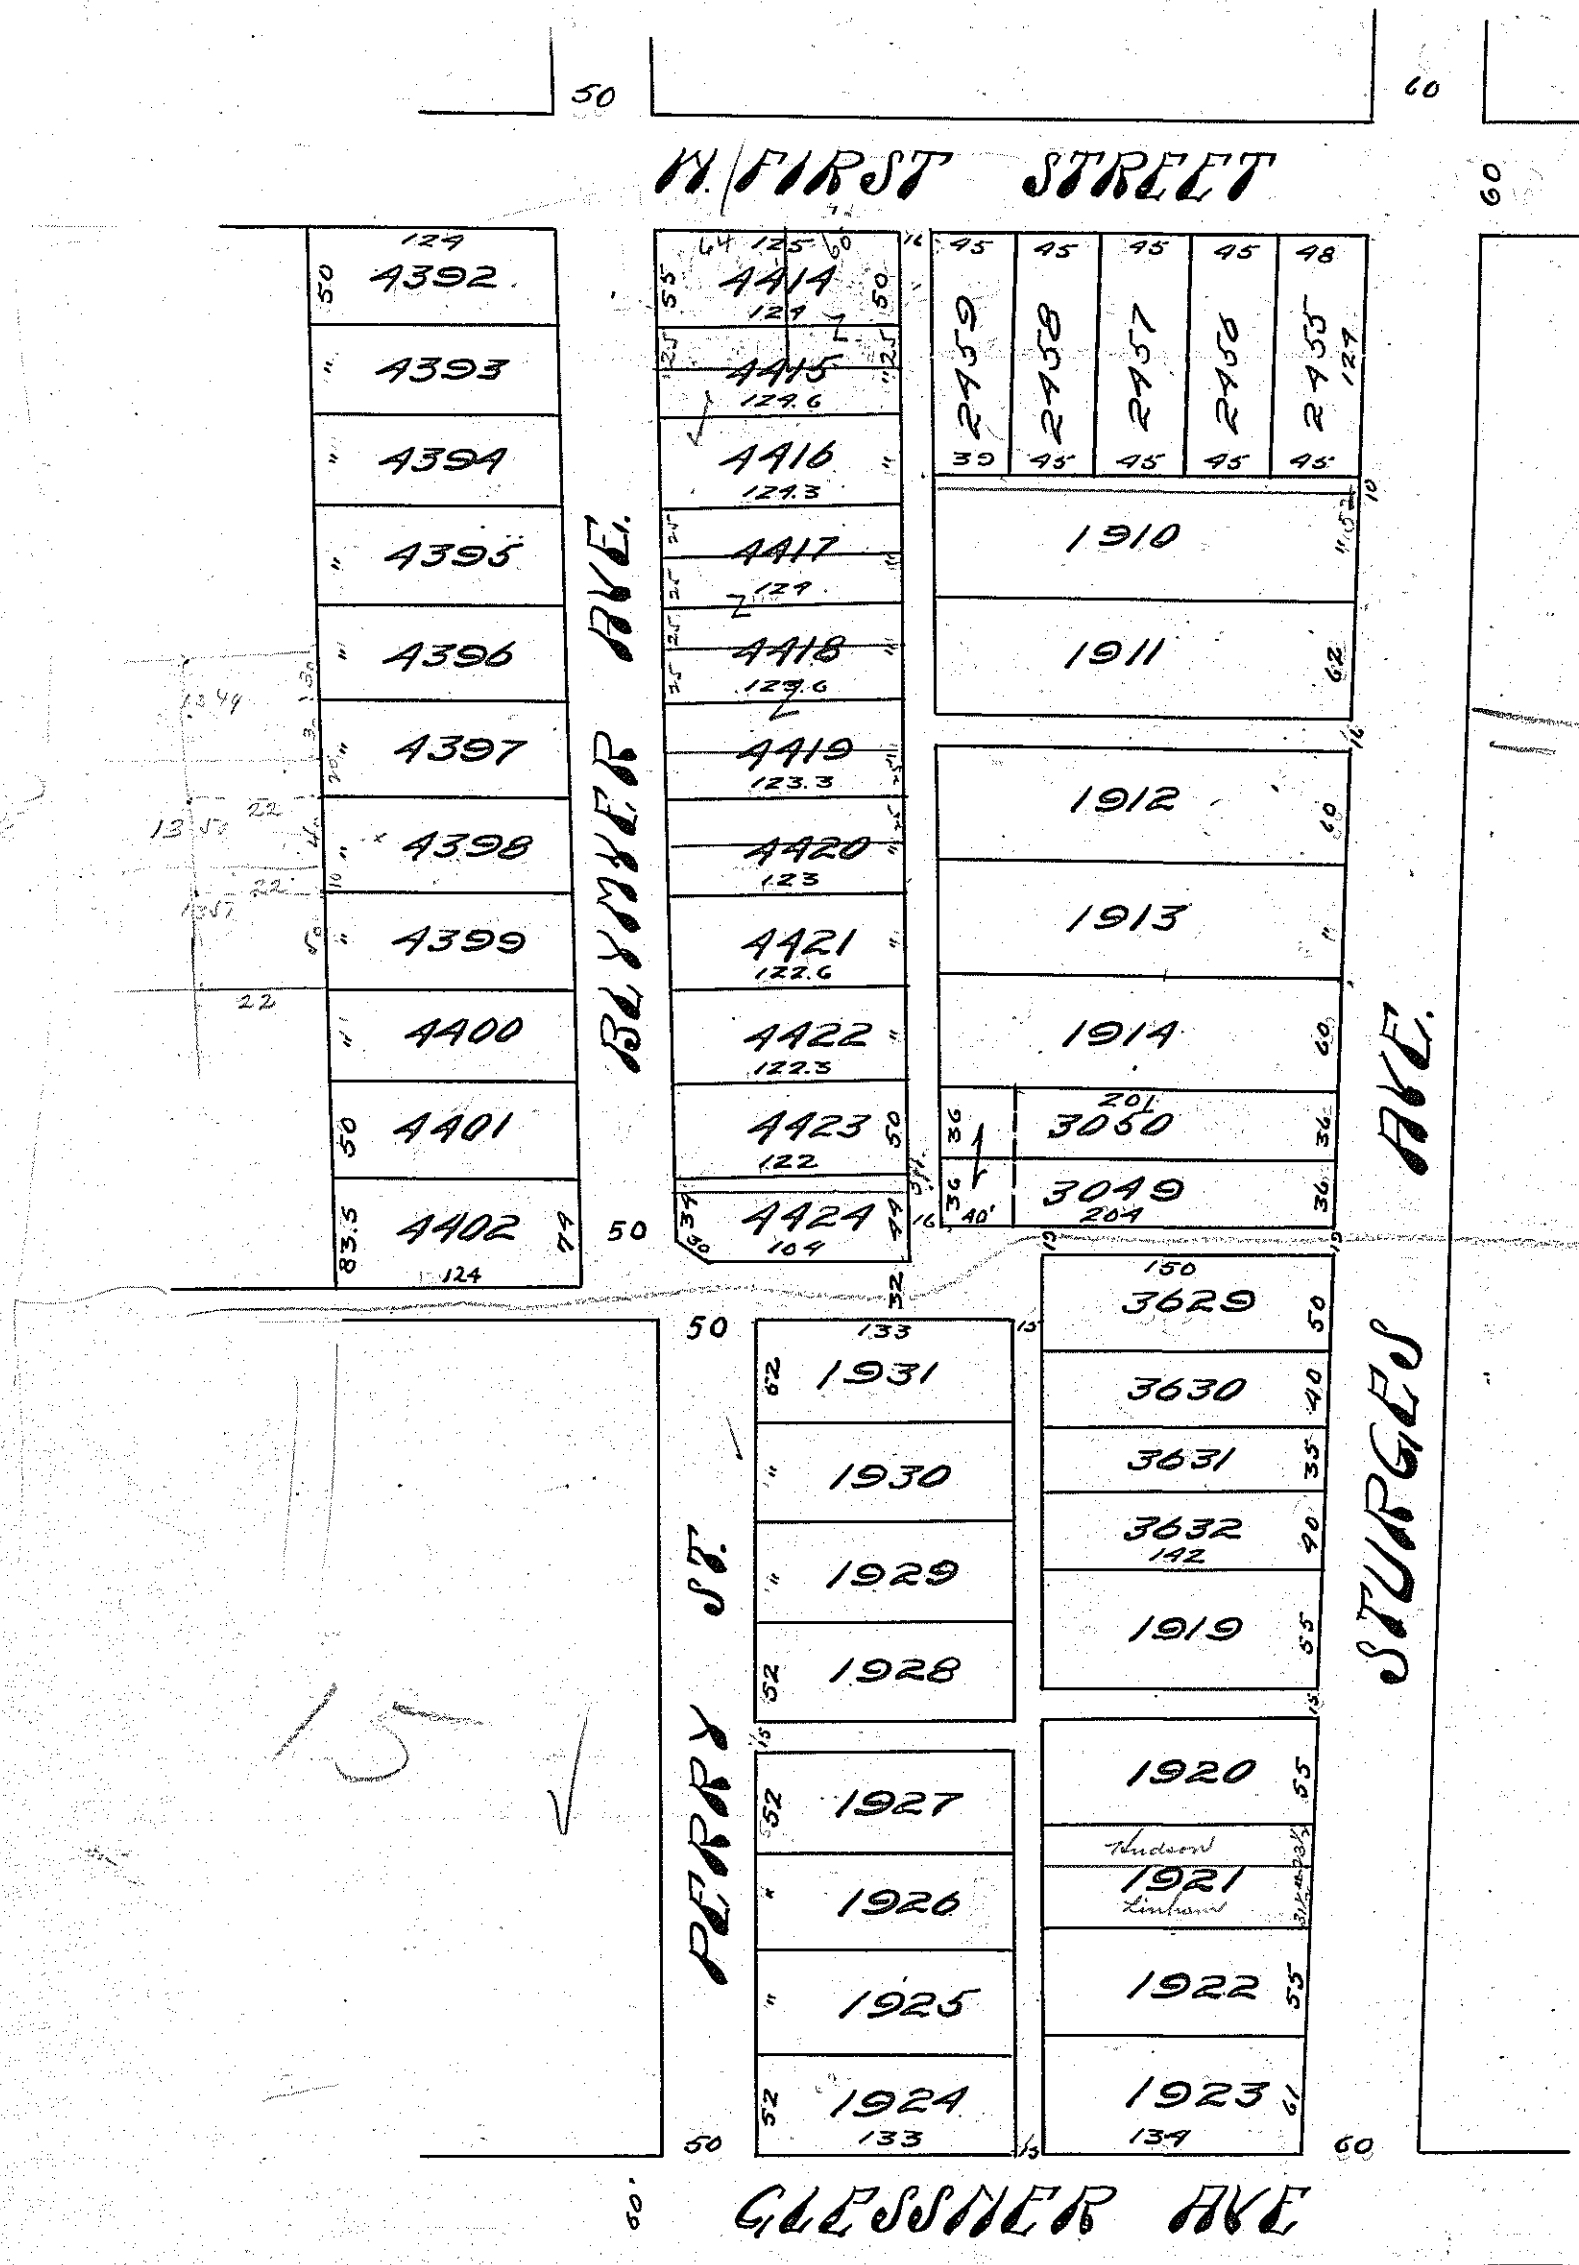 50
60
W. FIRST STREET
60
124
4392
50
" 4393
" 4394
" 4395
" 4396
" 4397
" 4398
" 4399
" 4400
50 4401
83.5 4402 74
124
1349
22
22
22
30
20
10
BLYMYER AVE.
50
64 125 60
55 4414 50
124
25 4415 " 25
124.6
4416 "
124.3
25 4417 "
25 124
25 4418 "
25 123.6
4419 "
123.3 25
4420 " 25
123
4421 "
122.6
4422 "
122.3
4423 50
122
34 4424 44
30 104
32
16
16
45 45 45 45 48
2459 2458 2457 2456 2455 124
39 45 45 45 45
10
1910
1911 62
16
1912 60
1913 "
1914 60
201
36 3050 36
36 3049 36
40' 204
19 19
150
3629 50
3630 40
3631 35
3632 40
142
1919 55
15
1920 55
Hudson
1921
Linham
1922 55
1923 61
134
STURGES AVE.
60
50
133
62 1931
" 1930
" 1929
52 1928
15
15
52 1927
" 1926
" 1925
52 1924
133
15
PERRY ST.
50
15
60
GLESSNER AVE